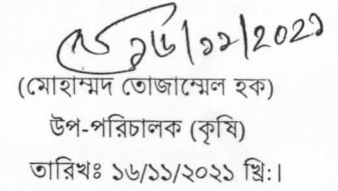 ১৬/১১/2021
(মোহাম্মদ তোজাম্মেল হক)
উপ-পরিচালক (কৃষি)
তারিখঃ ১৬/১১/২০২১ খ্রি:।